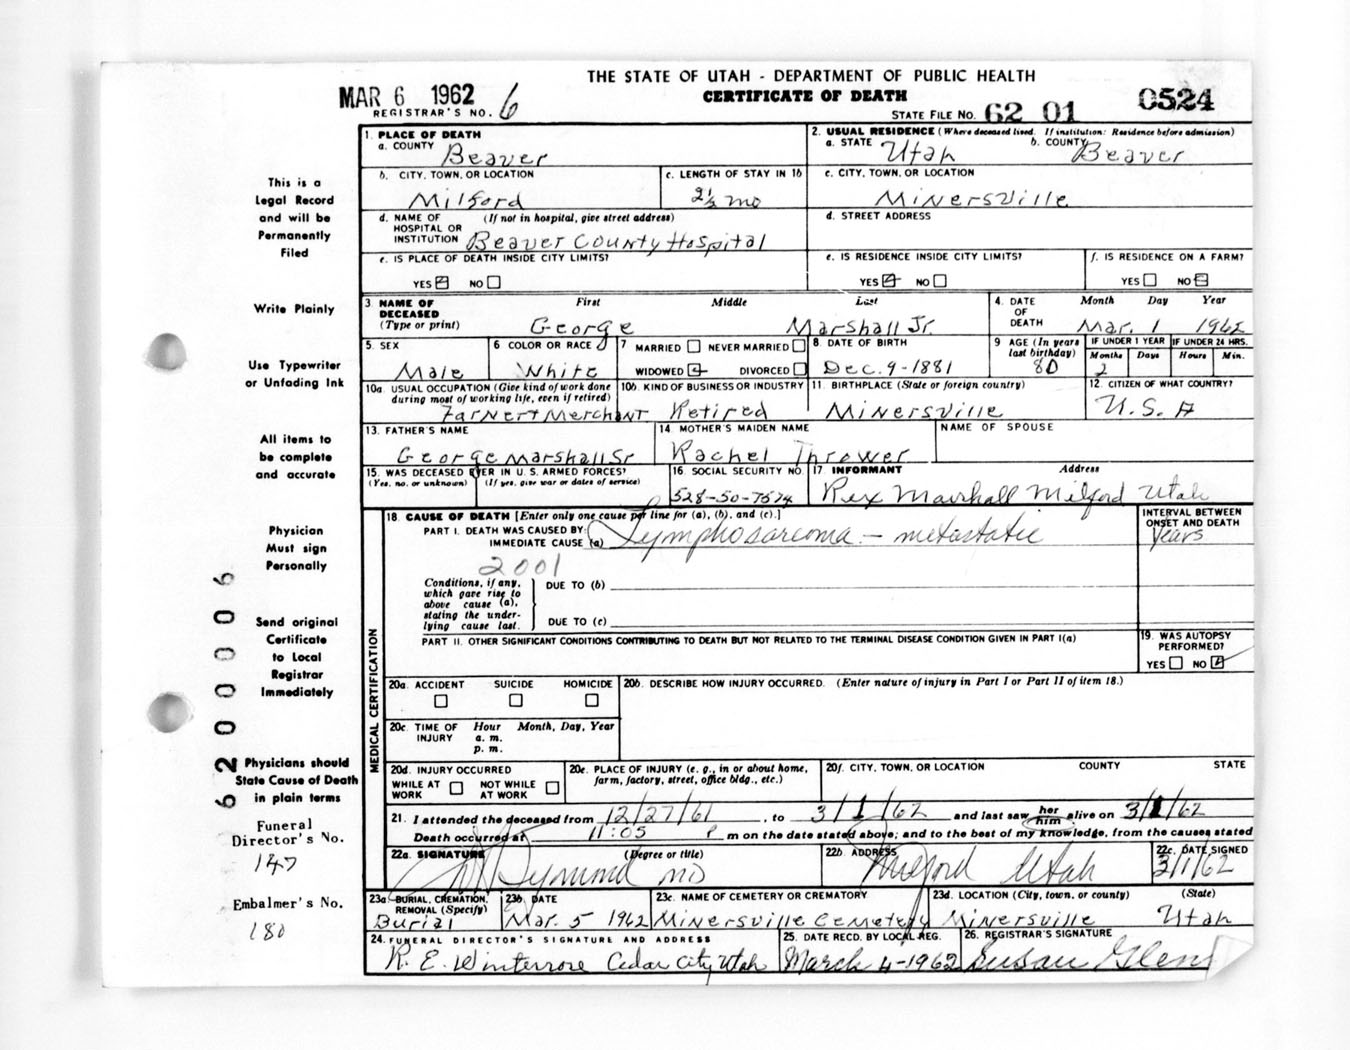 THE STATE OF UTAH - DEPARTMENT OF PUBLIC HEALTH
CERTIFICATE OF DEATH
MAR 6 1962
REGISTRAR'S NO. 6
STATE FILE NO. 62 01 0524
This is a
Legal Record
and will be
Permanently
Filed
Write Plainly
Use Typewriter
or Unfading Ink
All items to
be complete
and accurate
Physician
Must sign
Personally
Send original
Certificate
to Local
Registrar
Immediately
Physicians should
State Cause of Death
in plain terms
Funeral
Director's No.
147
Embalmer's No.
180
62 00006
1. PLACE OF DEATH
a. COUNTY Beaver
2. USUAL RESIDENCE (Where deceased lived. If institution: Residence before admission)
a. STATE Utah b. COUNTY Beaver
b. CITY, TOWN, OR LOCATION
Milford
c. LENGTH OF STAY IN 1b
2½ mo
c. CITY, TOWN, OR LOCATION
Minersville
d. NAME OF HOSPITAL OR INSTITUTION (If not in hospital, give street address)
Beaver County Hospital
d. STREET ADDRESS
e. IS PLACE OF DEATH INSIDE CITY LIMITS?
YES NO
e. IS RESIDENCE INSIDE CITY LIMITS?
YES NO
f. IS RESIDENCE ON A FARM?
YES NO
3. NAME OF DECEASED (Type or print)
First Middle Last
George Marshall Jr
4. DATE OF DEATH
Month Day Year
Mar. 1 1962
5. SEX
Male
6 COLOR OR RACE
White
7 MARRIED NEVER MARRIED
WIDOWED DIVORCED
8. DATE OF BIRTH
Dec. 9-1881
9 AGE (In years last birthday)
80
IF UNDER 1 YEAR
Months Days
2
IF UNDER 24 HRS.
Hours Min.
10a. USUAL OCCUPATION (Give kind of work done during most of working life, even if retired)
Farner+Merchant
10b. KIND OF BUSINESS OR INDUSTRY
Retired
11. BIRTHPLACE (State or foreign country)
Minersville
12. CITIZEN OF WHAT COUNTRY?
U.S.A
13. FATHER'S NAME
George Marshall Sr
14. MOTHER'S MAIDEN NAME
Rachel Thrower
NAME OF SPOUSE
15. WAS DECEASED EVER IN U. S. ARMED FORCES?
(Yes, no, or unknown) (If yes, give war or dates of service)
16. SOCIAL SECURITY NO.
528-50-7574
17. INFORMANT Address
Rex Marshall Milford Utah
MEDICAL CERTIFICATION
18. CAUSE OF DEATH [Enter only one cause per line for (a), (b), and (c).]
PART I. DEATH WAS CAUSED BY:
IMMEDIATE CAUSE (a) Lymphosarcoma - metastatic
INTERVAL BETWEEN ONSET AND DEATH
Years
2001
Conditions, if any, which gave rise to above cause (a), stating the underlying cause last.
DUE TO (b)
DUE TO (c)
PART II. OTHER SIGNIFICANT CONDITIONS CONTRIBUTING TO DEATH BUT NOT RELATED TO THE TERMINAL DISEASE CONDITION GIVEN IN PART I(a)
19. WAS AUTOPSY PERFORMED?
YES NO
20a. ACCIDENT SUICIDE HOMICIDE
20b. DESCRIBE HOW INJURY OCCURRED. (Enter nature of injury in Part I or Part II of item 18.)
20c. TIME OF INJURY
Hour Month, Day, Year
a. m.
p. m.
20d. INJURY OCCURRED
WHILE AT WORK NOT WHILE AT WORK
20e. PLACE OF INJURY (e. g., in or about home, farm, factory, street, office bldg., etc.)
20f. CITY, TOWN, OR LOCATION COUNTY STATE
21. I attended the deceased from 12/27/61, to 3/1/62 and last saw her him alive on 3/1/62
Death occurred at 11:05 P m on the date stated above; and to the best of my knowledge, from the causes stated
22a. SIGNATURE (Degree or title)
Symond MD
22b. ADDRESS
Milford Utah
22c. DATE SIGNED
3/1/62
23a. BURIAL, CREMATION, REMOVAL (Specify)
Burial
23b DATE
Mar. 5 1962
23c. NAME OF CEMETERY OR CREMATORY
Minersville Cemetery
23d. LOCATION (City, town, or county) (State)
Minersville Utah
24. FUNERAL DIRECTOR'S SIGNATURE AND ADDRESS
R. E. Winterrose Cedar City, Utah
25. DATE RECD. BY LOCAL REG.
March 4-1962
26. REGISTRAR'S SIGNATURE
Susan